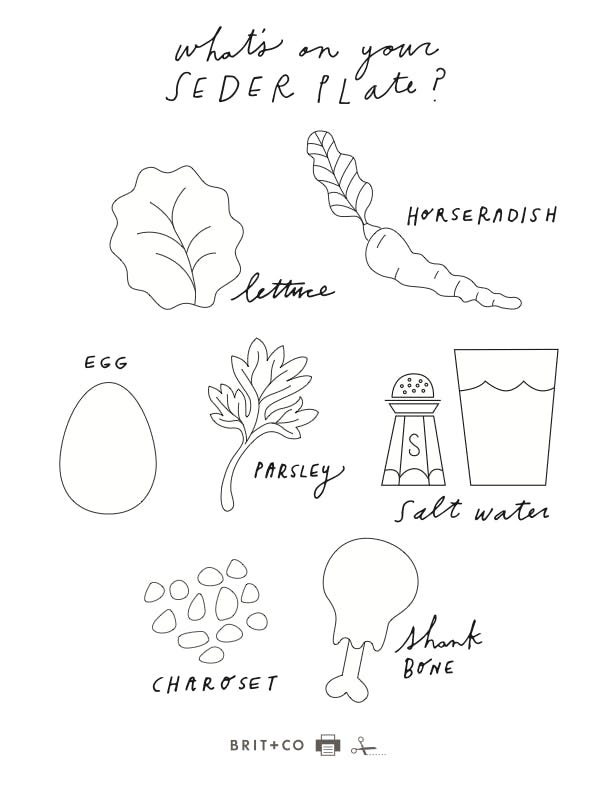 what's on your
SEDER PLate?
HORSERADISH
lettuce
EGG
PARSLEy
S
Salt water
CHAROSET
shank
BONE
BRIT+CO